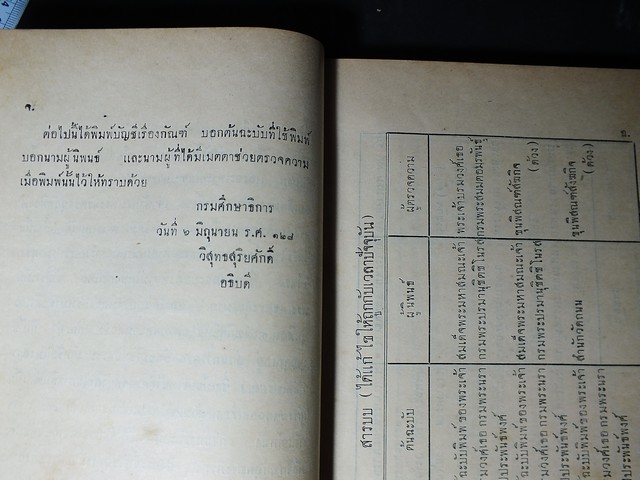 จ.
ต่อไปนี้ได้พิมพ์บัญชีเรื่องกัณฑ์ บอกต้นฉะบับที่ใช้พิมพ์
บอกนามผู้นิพนธ์ และนามผู้ที่ได้มีเมตตาช่วยตรวจความ
เมื่อพิมพ์นั้นไว้ให้ทราบด้วย
กรมศึกษาธิการ
วันที่ ๖ มิถุนายน ร.ศ. ๑๒๘
วิสุทธสุริยศักดิ์
อธิบดี
สารบบ ( ได้แก้ไขให้ถูกกับเวลาปัจจุบัน)
ต้นฉะบับ
ผู้นิพนธ์
ผู้ตรวจความ
ฉะบับพิมพ์ของพระเจ้า
สมเด็จพระมหาสมณะเจ้า
พระเจ้าบรมวงศ์เธอ
วงศ์เธอ กรมพระนรา
กรมพระปรมานุชิตชิโนรส
กรมพระสมมตอมรพันธุ์
ธิประพันธ์พงศ์
ฉะบับพิมพ์ของพระเจ้า
สมเด็จพระมหาสมณะเจ้า
ขุนพิสณฑ์สังฆกิจ
วงศ์เธอ กรมพระนรา
กรมพระปรมานุชิตชิโนรส
(ด้วง)
ธิประพันธ์พงศ์
ฉะบับพิมพ์ของพระเจ้า
สำนักวัดถนน
ขุนพิสณฑ์สังฆกิจ
วงศ์เธอ กรมพระนรา
(ด้วง)
ธิประพันธ์พงศ์